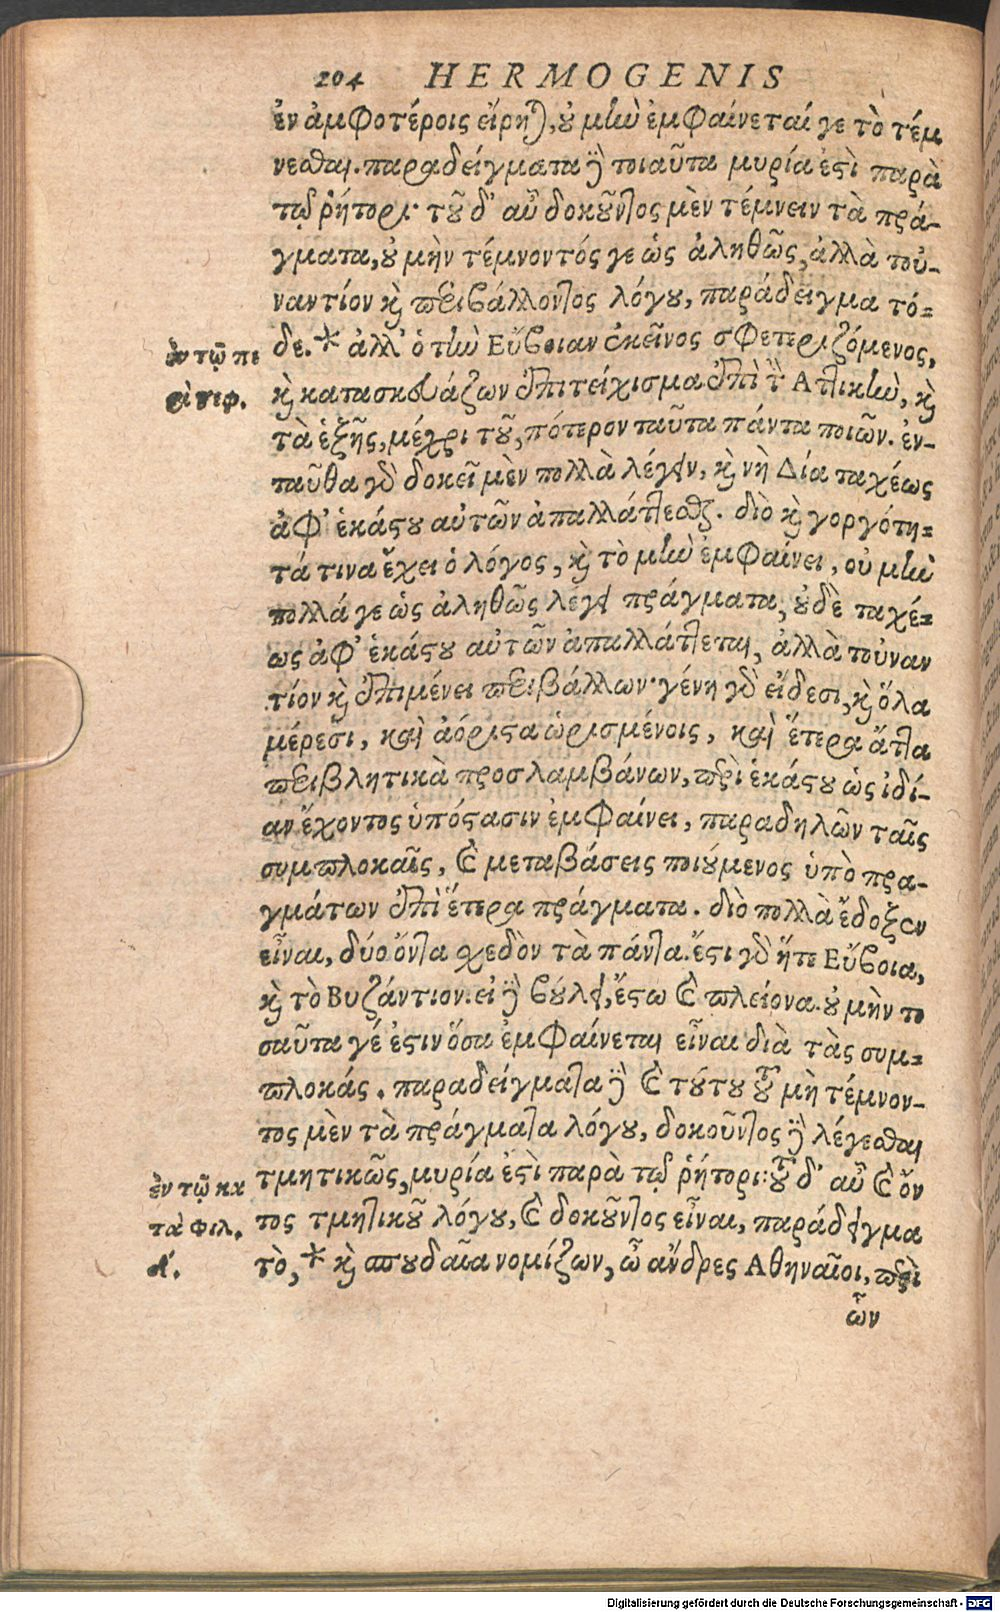 204 HERMOGENIS
ἐν ἀμφοτέροις εἴρηται, οὐ μὴν ἐμφαίνεταί γε τὸ τέμ
νεσθαι. παραδείγματα δὲ τοιαῦτα μυρία ἐστὶ παρὰ
τῷ ῥήτορι· τοῦ δ' αὖ δοκοῦντος μὲν τέμνειν τὰ πρά-
γματα, οὐ μὴν τέμνοντός γε ὡς ἀληθῶς, ἀλλὰ τοὐ-
ναντίον καὶ περιβάλλοντος λόγου, παράδειγμα τό-
δε. * ἀλλ' ὁ τὴν Εὔβοιαν ἐκεῖνος σφετεριζόμενος,
ἐν τῷ πε
ρὶ στεφ.
καὶ κατασκευάζων ἐπιτείχισμα ἐπὶ τὴν Ἀττικὴν, καὶ
τὰ ἑξῆς, μέχρι τοῦ, πότερον ταῦτα πάντα ποιῶν. ἐν-
ταῦθα γὰρ δοκεῖ μὲν πολλὰ λέγειν, καὶ νὴ Δία ταχέως
ἀφ' ἑκάστου αὐτῶν ἀπαλλάττεσθαι. διὸ καὶ γοργότη-
τά τινα ἔχει ὁ λόγος, καὶ τὸ μὴν ἐμφαίνει, οὐ μὴν
πολλά γε ὡς ἀληθῶς λέγει πράγματα, οὐδὲ ταχέ-
ως ἀφ' ἑκάστου αὐτῶν ἀπαλλάττεται, ἀλλὰ τοὐναν
τίον καὶ ἐπιμένει περιβάλλων· γένη γὰρ εἴδεσι, καὶ ὅλα
μέρεσι, καὶ ἀόριστα ὡρισμένοις, καὶ ἕτερα ἄττα
περιβλητικὰ προσλαμβάνων, περὶ ἑκάστου ὡς ἰδί-
αν ἔχοντος ὑπόστασιν ἐμφαίνει, παραδηλῶν ταῖς
συμπλοκαῖς, καὶ μεταβάσεις ποιούμενος ὑπὸ πρα-
γμάτων ἐπὶ ἕτερα πράγματα. διὸ πολλὰ ἔδοξεν
εἶναι, δύο ὄντα σχεδὸν τὰ πάντα. ἔστι γὰρ ἥτε Εὔβοια,
καὶ τὸ Βυζάντιον. εἰ δὲ βούλει, ἔστω καὶ πλείονα. οὐ μὴν το
σαῦτα γέ ἐστιν ὅσα ἐμφαίνεται εἶναι διὰ τὰς συμ-
πλοκάς. παραδείγματα δὲ καὶ τούτου τοῦ μὴ τέμνον-
τος μὲν τὰ πράγματα λόγου, δοκοῦντος δὲ λέγεσθαι
τμητικῶς, μυρία ἐστὶ παρὰ τῷ ῥήτορι: τοῦ δ' αὖ καὶ ὄν
ἐν τῷ κα
τὰ Φιλ.
α΄.
τος τμητικοῦ λόγου, καὶ δοκοῦντος εἶναι, παράδειγμα
τὸ, * καὶ σπουδαῖα νομίζων, ὦ ἄνδρες Ἀθηναῖοι, περὶ
ὧν
Digitalisierung gefördert durch die Deutsche Forschungsgemeinschaft - DFG